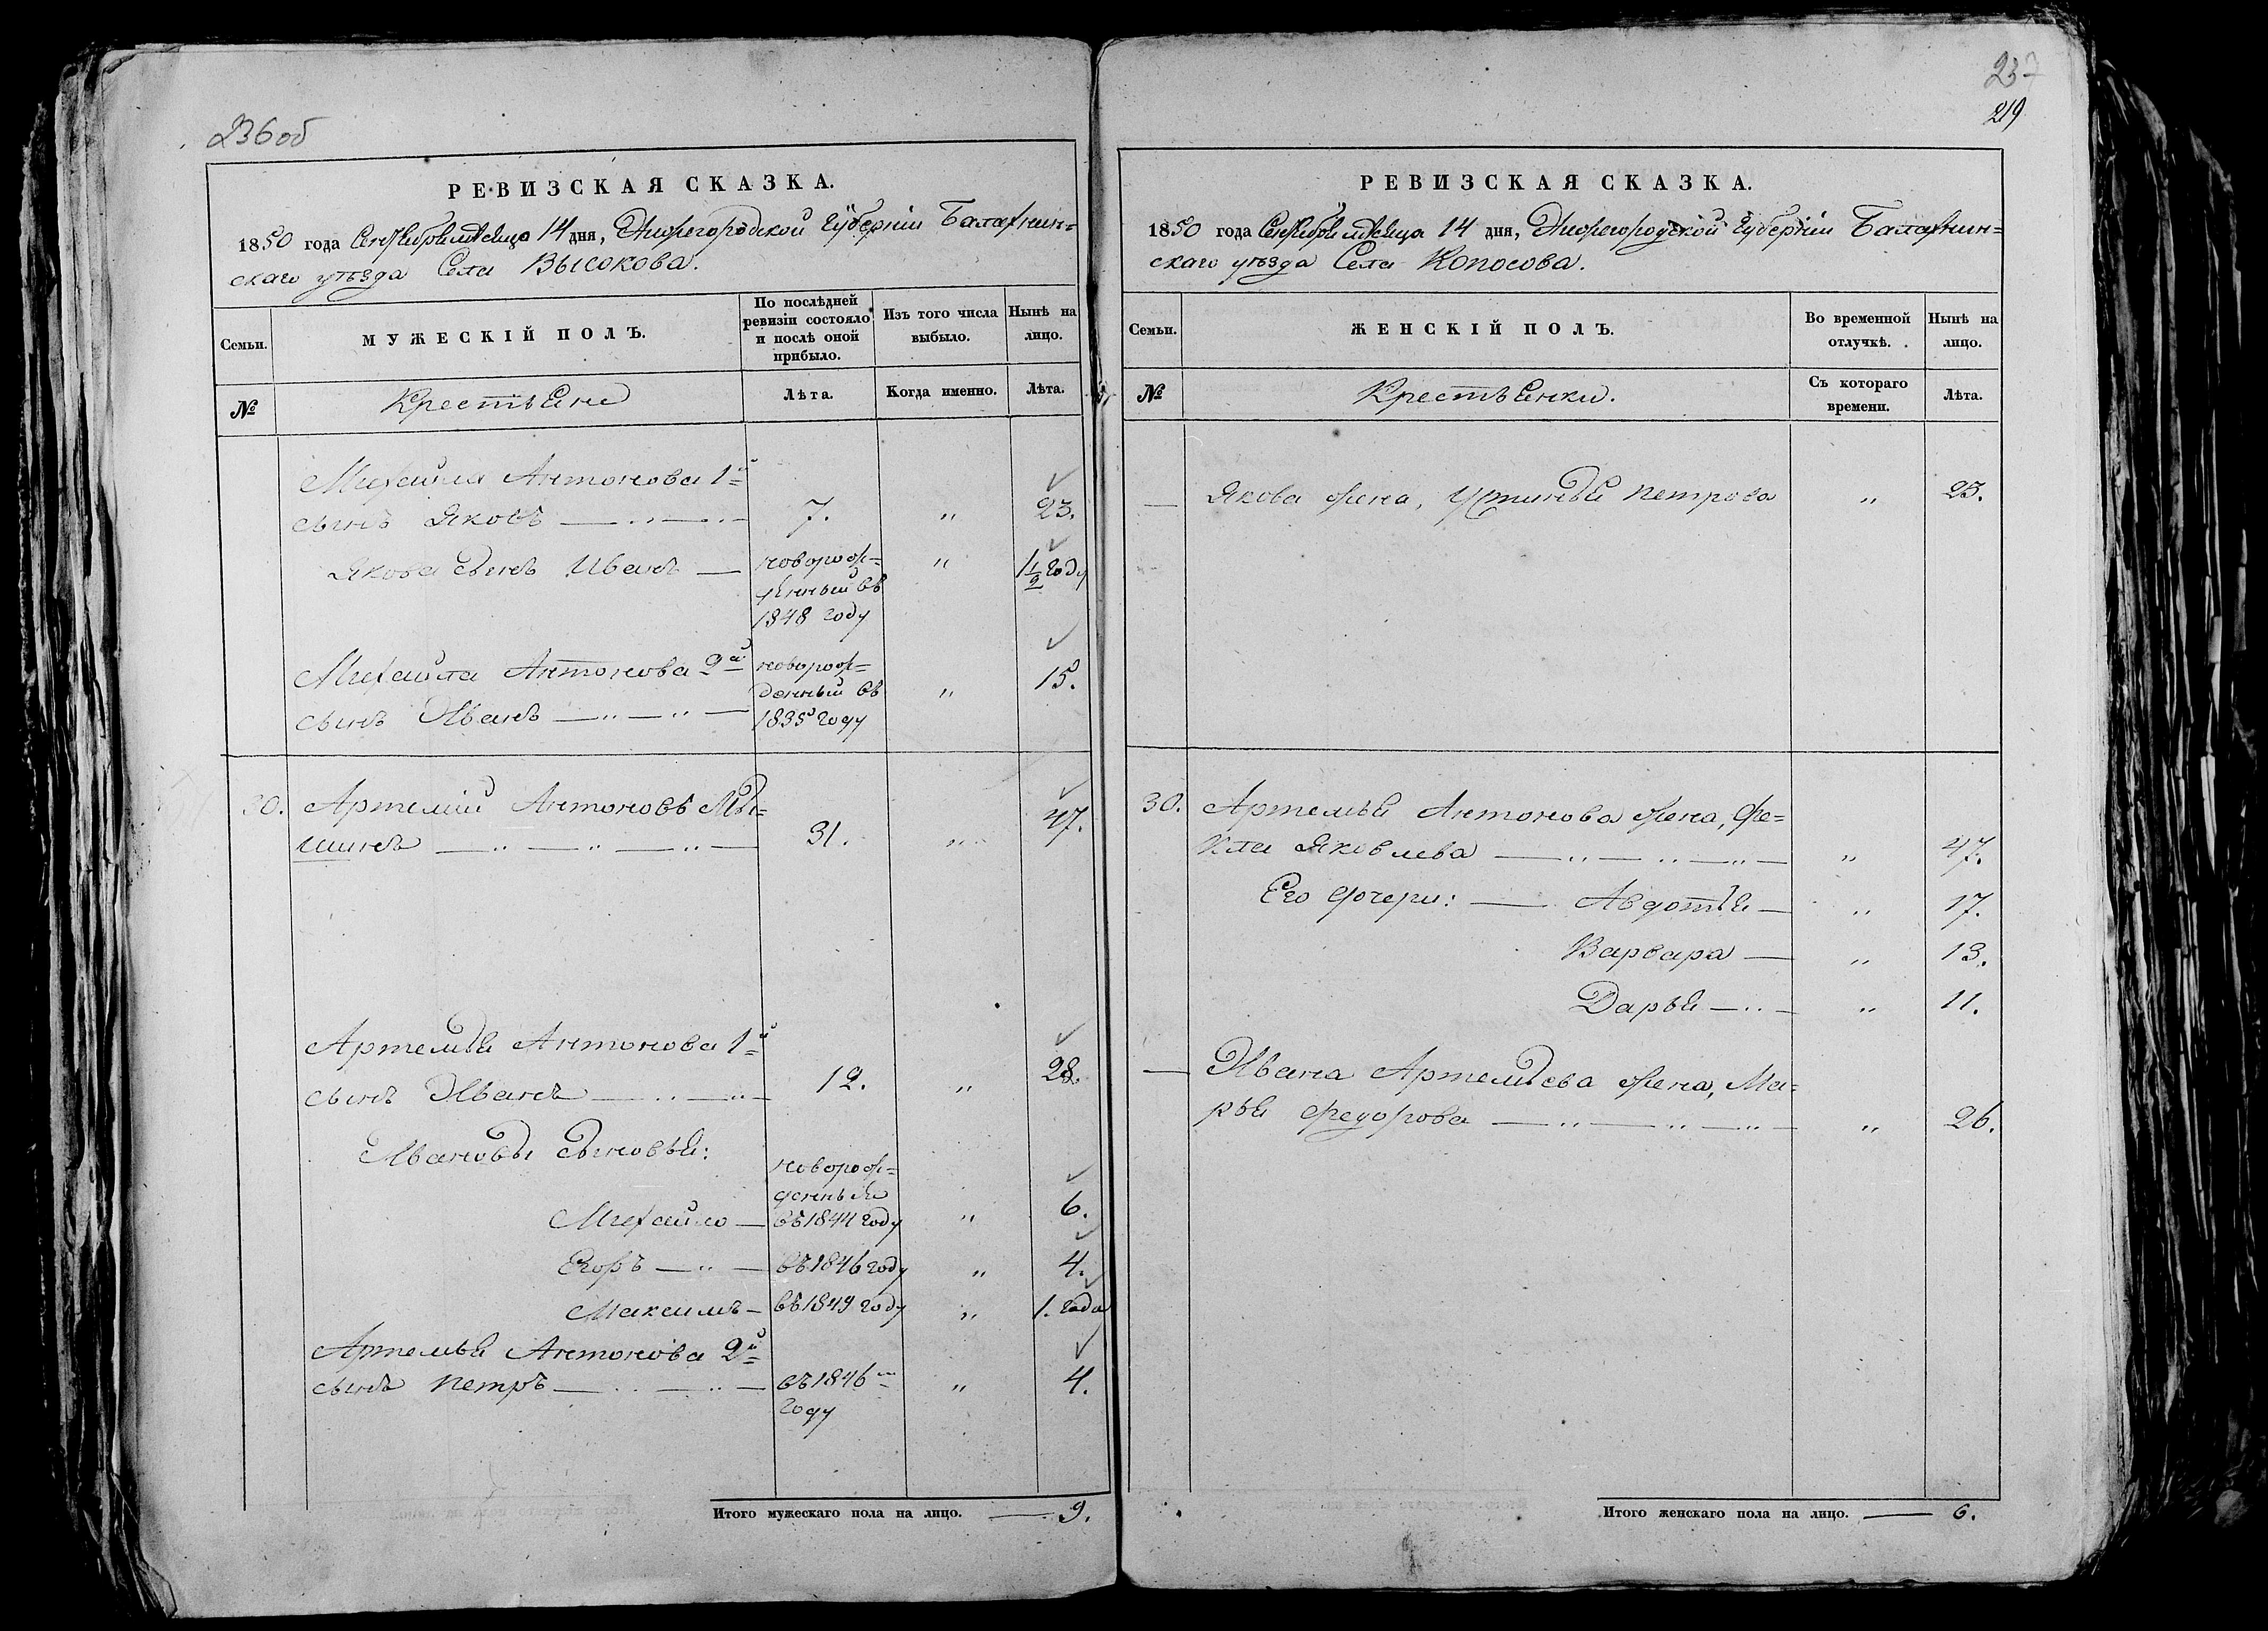 236 об
РЕВИЗСКАЯ СКАЗКА.
1850 года Сентября месяца 14 дня, Нижегородской Губернiи Балахнин=
скаго уѣзда Села Высокова.
Семьи.
МУЖЕСКIЙ ПОЛЪ.
По послѣдней ревизiи состояло и послѣ оной прибыло.
Изъ того числа выбыло.
Нынѣ на лицо.
№
Крестьяне
Лѣта.
Когда именно.
Лѣта.
Михайла Антонова 1й
сынъ Яковъ 7. " 23.
Якова сынъ Иванъ новорож= " 1 1/2 году
денный въ
1848 году
Михайла Антонова 2й новорож=
денный въ " 15.
сынъ Иванъ 1835 году
30. Артемiй Антоновъ Мы=
шинъ 31. " 47.
Артемья Антонова 1й
сынъ Иванъ 12. " 28.
Ивановы сыновья: новорож=
денные
Михайло въ 1844 году " 6.
Егоръ въ 1846 году " 4.
Максимъ въ 1849 году " 1. года
Артемья Антонова 2й
сынъ Петръ въ 1846м " 4.
году
Итого мужескаго пола на лицо. 9.
237
219
РЕВИЗСКАЯ СКАЗКА.
1850 года Сентября месяца 14 дня, Нижегородской Губернiи Балахнин=
скаго уѣзда Села Копосова.
Семьи.
ЖЕНСКIЙ ПОЛЪ.
Во временной отлучкѣ.
Нынѣ на лицо.
№
Крестьянки.
Съ котораго времени.
Лѣта.
Якова жена, Устинья Петрова " 25.
30. Артемья Антонова жена, Фе=
кла Яковлева " 47.
Его дочери: Авдотья " 17.
Варвара " 13.
Дарья " 11.
Ивана Артемьева жена, Ма=
рья Федорова " 26.
Итого женскаго пола на лицо. 6.